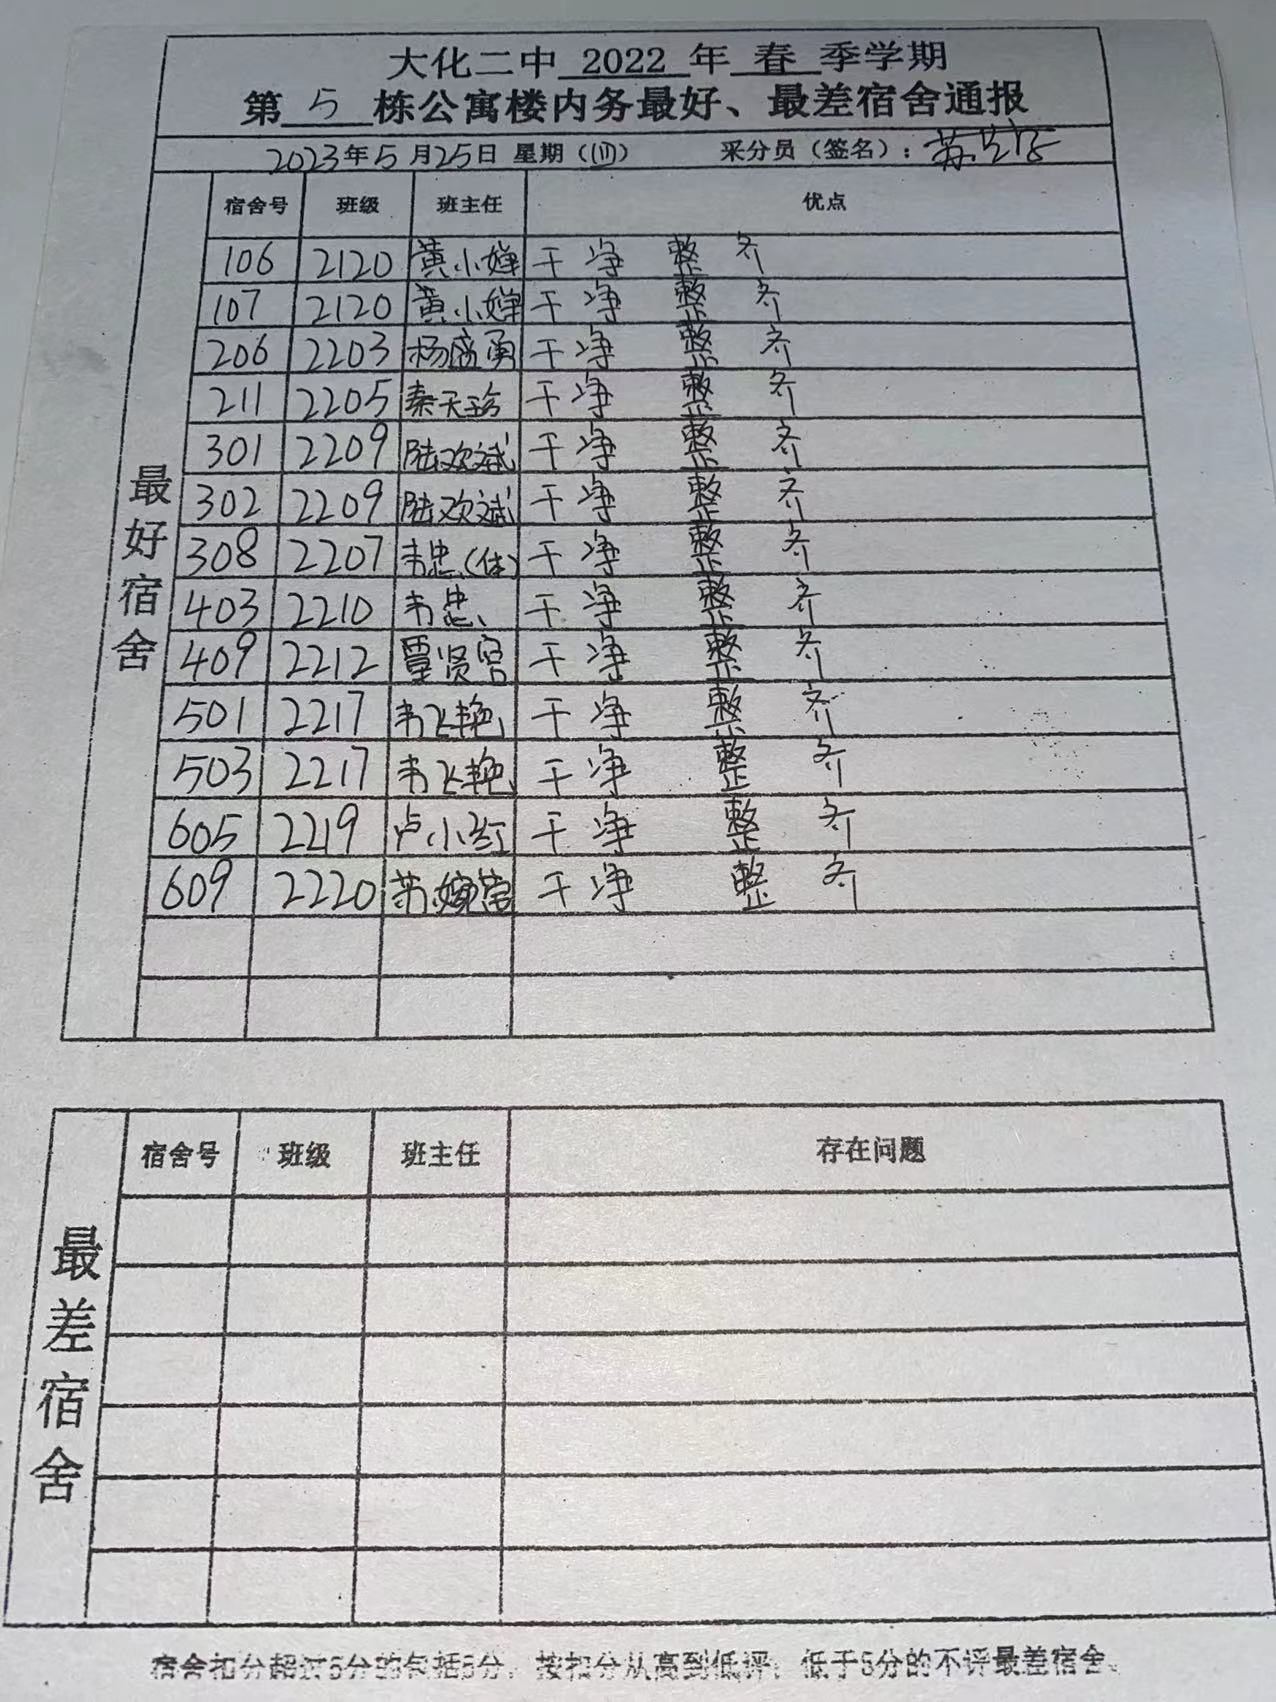 大化二中 2022 年 春 季学期
第 5 栋公寓楼内务最好、最差宿舍通报
2023年5月25日 星期(四) 采分员(签名):
最好宿舍
宿舍号 班级 班主任 优点
106 2120 黄小婵 干净 整齐
107 2120 黄小婵 干净 整齐
206 2203 杨盛勇 干净 整齐
211 2205 秦天珍 干净 整齐
301 2209 陆欢斌 干净 整齐
302 2209 陆欢斌 干净 整齐
308 2207 韦忠(体) 干净 整齐
403 2210 韦忠 干净 整齐
409 2212 覃贤宫 干净 整齐
501 2217 韦飞艳 干净 整齐
503 2217 韦飞艳 干净 整齐
605 2219 卢小红 干净 整齐
609 2220 干净 整齐
最差宿舍
宿舍号 班级 班主任 存在问题
宿舍扣分超过5分的包括5分,按扣分从高到低评;低于5分的不评最差宿舍。